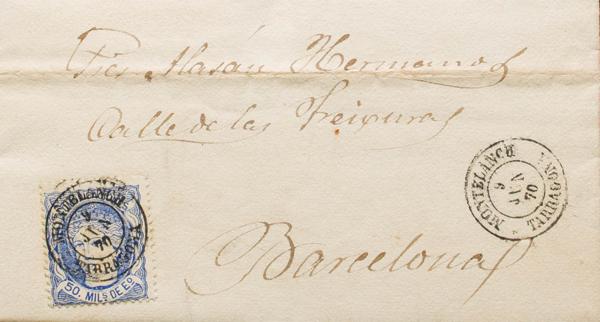 Sres Masán Hermanos
Calle de las Freixuras
Barcelona
MONTBLANCH
9
JUN
70
TARRAGONA
50. MILS DE EO.
MONTBLANCH
9
JUN
70
TARRAGONA